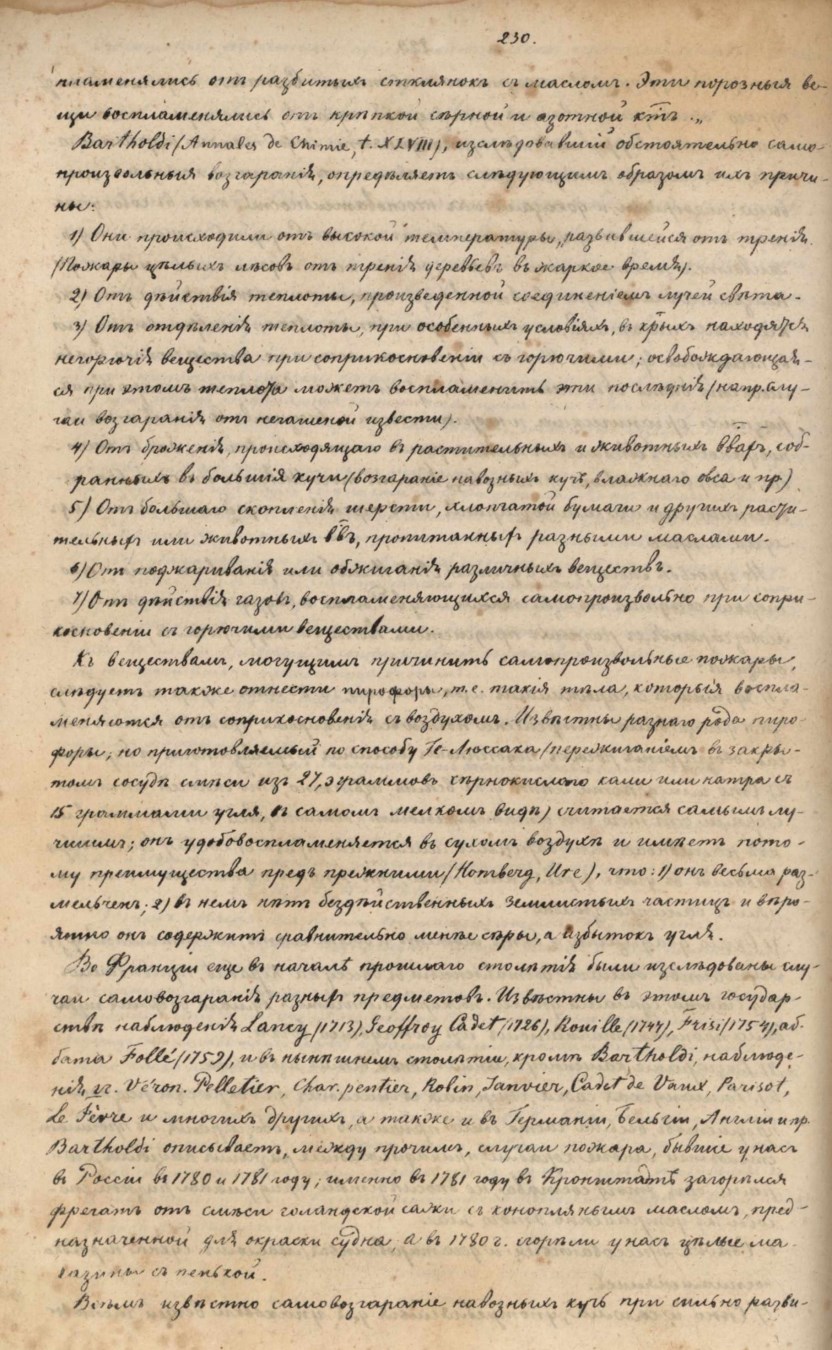 230.
пламенялись отъ разбитыхъ стклянокъ съ масломъ. Эти порозныя ве-
щи воспламенялись отъ крѣпкой сѣрной и азотной к̅т̅ъ.„
Bartholdi (Annales de Chimie, t. XLVIII), изслѣдовавшій обстоятельно само-
произвольныя возгаранія, опредѣляетъ слѣдующимъ образомъ ихъ причи-
ны:
1) Они происходили отъ высокой температуры, развившейся отъ тренія
(Пожары цѣлыхъ лѣсовъ отъ тренія деревьевъ въ жаркое время).
2) Отъ дѣйствія теплоты, произведенной соединеніемъ лучей свѣта.
3) Отъ отдѣленія теплоты, при особенныхъ условіяхъ, въ к̅рыхъ находятся
негорючія вещества при соприкосновеніи съ горючими; освобождающая-
ся при этомъ теплота можетъ воспламенить эти послѣднія (напр. слу-
чаи возгаранія отъ негашеной извести).
4) Отъ броженія, происходящаго въ растительныхъ и животныхъ в̅вахъ, соб-
ранныхъ въ большія кучи (возгараніе навозныхъ кучъ, влажнаго овса и пр.)
5) Отъ большаго скопленія шерсти, хлопчатой бумаги и другихъ расти-
тельныхъ или животныхъ в̅в̅ъ, пропитанныхъ разными маслами.
6) Отъ поджариванія или обжиганія различныхъ веществъ.
7) Отъ дѣйствія газовъ, воспламеняющихся самопроизвольно при сопри-
косновеніи съ горючими веществами.
Къ веществамъ, могущимъ причинить самопроизвольные пожары,
слѣдуетъ также отнести пирофоры, т.е. такія тѣла, которыя воспла-
меняются отъ соприкосновенія съ воздухомъ. Извѣстны разнаго рода пиро-
форы; но приготовляемый по способу Ге-Люссака (пережиганіемъ въ закры-
томъ сосудѣ смѣси изъ 27,3 граммовъ сѣрнокислаго кали или натра съ
15 граммами угля, въ самомъ мелкомъ видѣ) считается самымъ лу-
чшимъ; онъ удобовоспламеняется въ сухомъ воздухѣ и имѣетъ пото-
му преимущества предъ прежними (Homberg, Ure), что: 1) онъ весьма раз-
мельченъ; 2) въ немъ нѣтъ бездѣйственныхъ землистыхъ частицъ и вѣро-
ятно онъ содержитъ сравнительно менѣе сѣры, а избытокъ угля.
Во Франціи еще въ началѣ прошлаго столѣтія были изслѣдованы слу-
чаи самовозгаранія разныхъ предметовъ. Извѣстны въ этомъ государ-
ствѣ наблюденія Lancy (1713), Geoffroy Cadet (1726), Rouille (1747), Frisi (1754), аб-
бата Follé (1759), и въ нынѣшнемъ столѣтіи, кромѣ Bartholdi, наблюде-
нія гг. Véron. Pelletier, Charpentier, Robin, Janvier, Cadet de Vaux, Parisot,
Le Fèvre и многихъ другихъ, а также и въ Германіи, Бельгіи, Англіи и пр.
Bartholdi описываетъ, между прочимъ, случаи пожара, бывшіе у насъ
въ Россіи въ 1780 и 1781 году; именно въ 1781 году въ Кронштадтѣ загорѣлся
фрегатъ отъ смѣси голандской сажи съ коноплянымъ масломъ, пред-
назначенной для окраски судна, а въ 1780 г. сгорѣли у насъ цѣлые ма-
газины съ пенькой.
Всѣмъ извѣстно самовозгараніе навозныхъ кучъ при сильно разви-